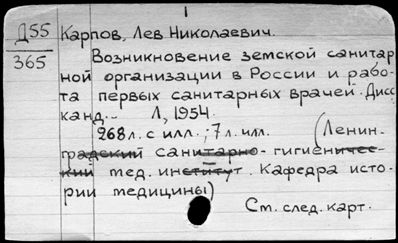 1
Д55 Карпов, Лев Николаевич.
365 Возникновение земской санитар
ной организации в России и рабо-
та первых санитарных врачей. Дисс.
канд.- Л, 1954.
268 л. с илл.; 7 л. илл. (Ленин-
градский санитарно-гигиеничес-
кий мед. институт. Кафедра исто-
рии медицины)
См. след. карт.